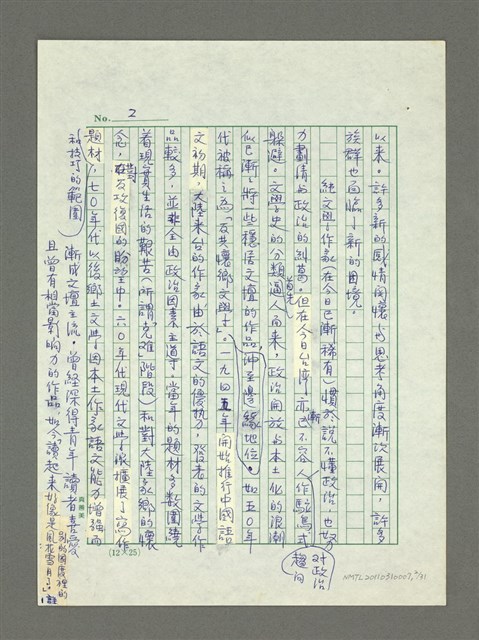 No. 2
以來。許多新的國情關懷與思考角度漸次展開,許多
族群也面臨了新的困境。
純文學作家(在今日已漸稀有)慣於說不懂政治,也努
力劃清與政治的糾葛。但在今日台灣,亦已漸不容人作鴕鳥式
對政治趨向
躲避。文學史的分類首先逼人而來,政治開放與本土化的浪潮
似已漸漸將一些穩居文壇的作品沖至邊緣地位。如五〇年
代被稱之為「反共懷鄉文學」。一九四五年開始推行中國語
文初期,大陸來台的作家由於語文的優勢,發表的文學作
品較多,並非全由政治因素主導。當年的題材多數圍繞
著現實生活的艱苦(所謂「克難」階段)和對大陸家鄉的懷
念,對反攻復國的盼望中。六〇年代現代文學擴展了寫作
題材
和技巧的範圍
,七〇年代以後鄉土文學因本土作家語文能力增強而
漸成文壇主流。曾經深得青年讀者喜愛
且曾有相當影響力的作品,如今讀起來好像是
別的國度裡的
風花雪月了。
(12×25)
NMTL20110510007, 2/31